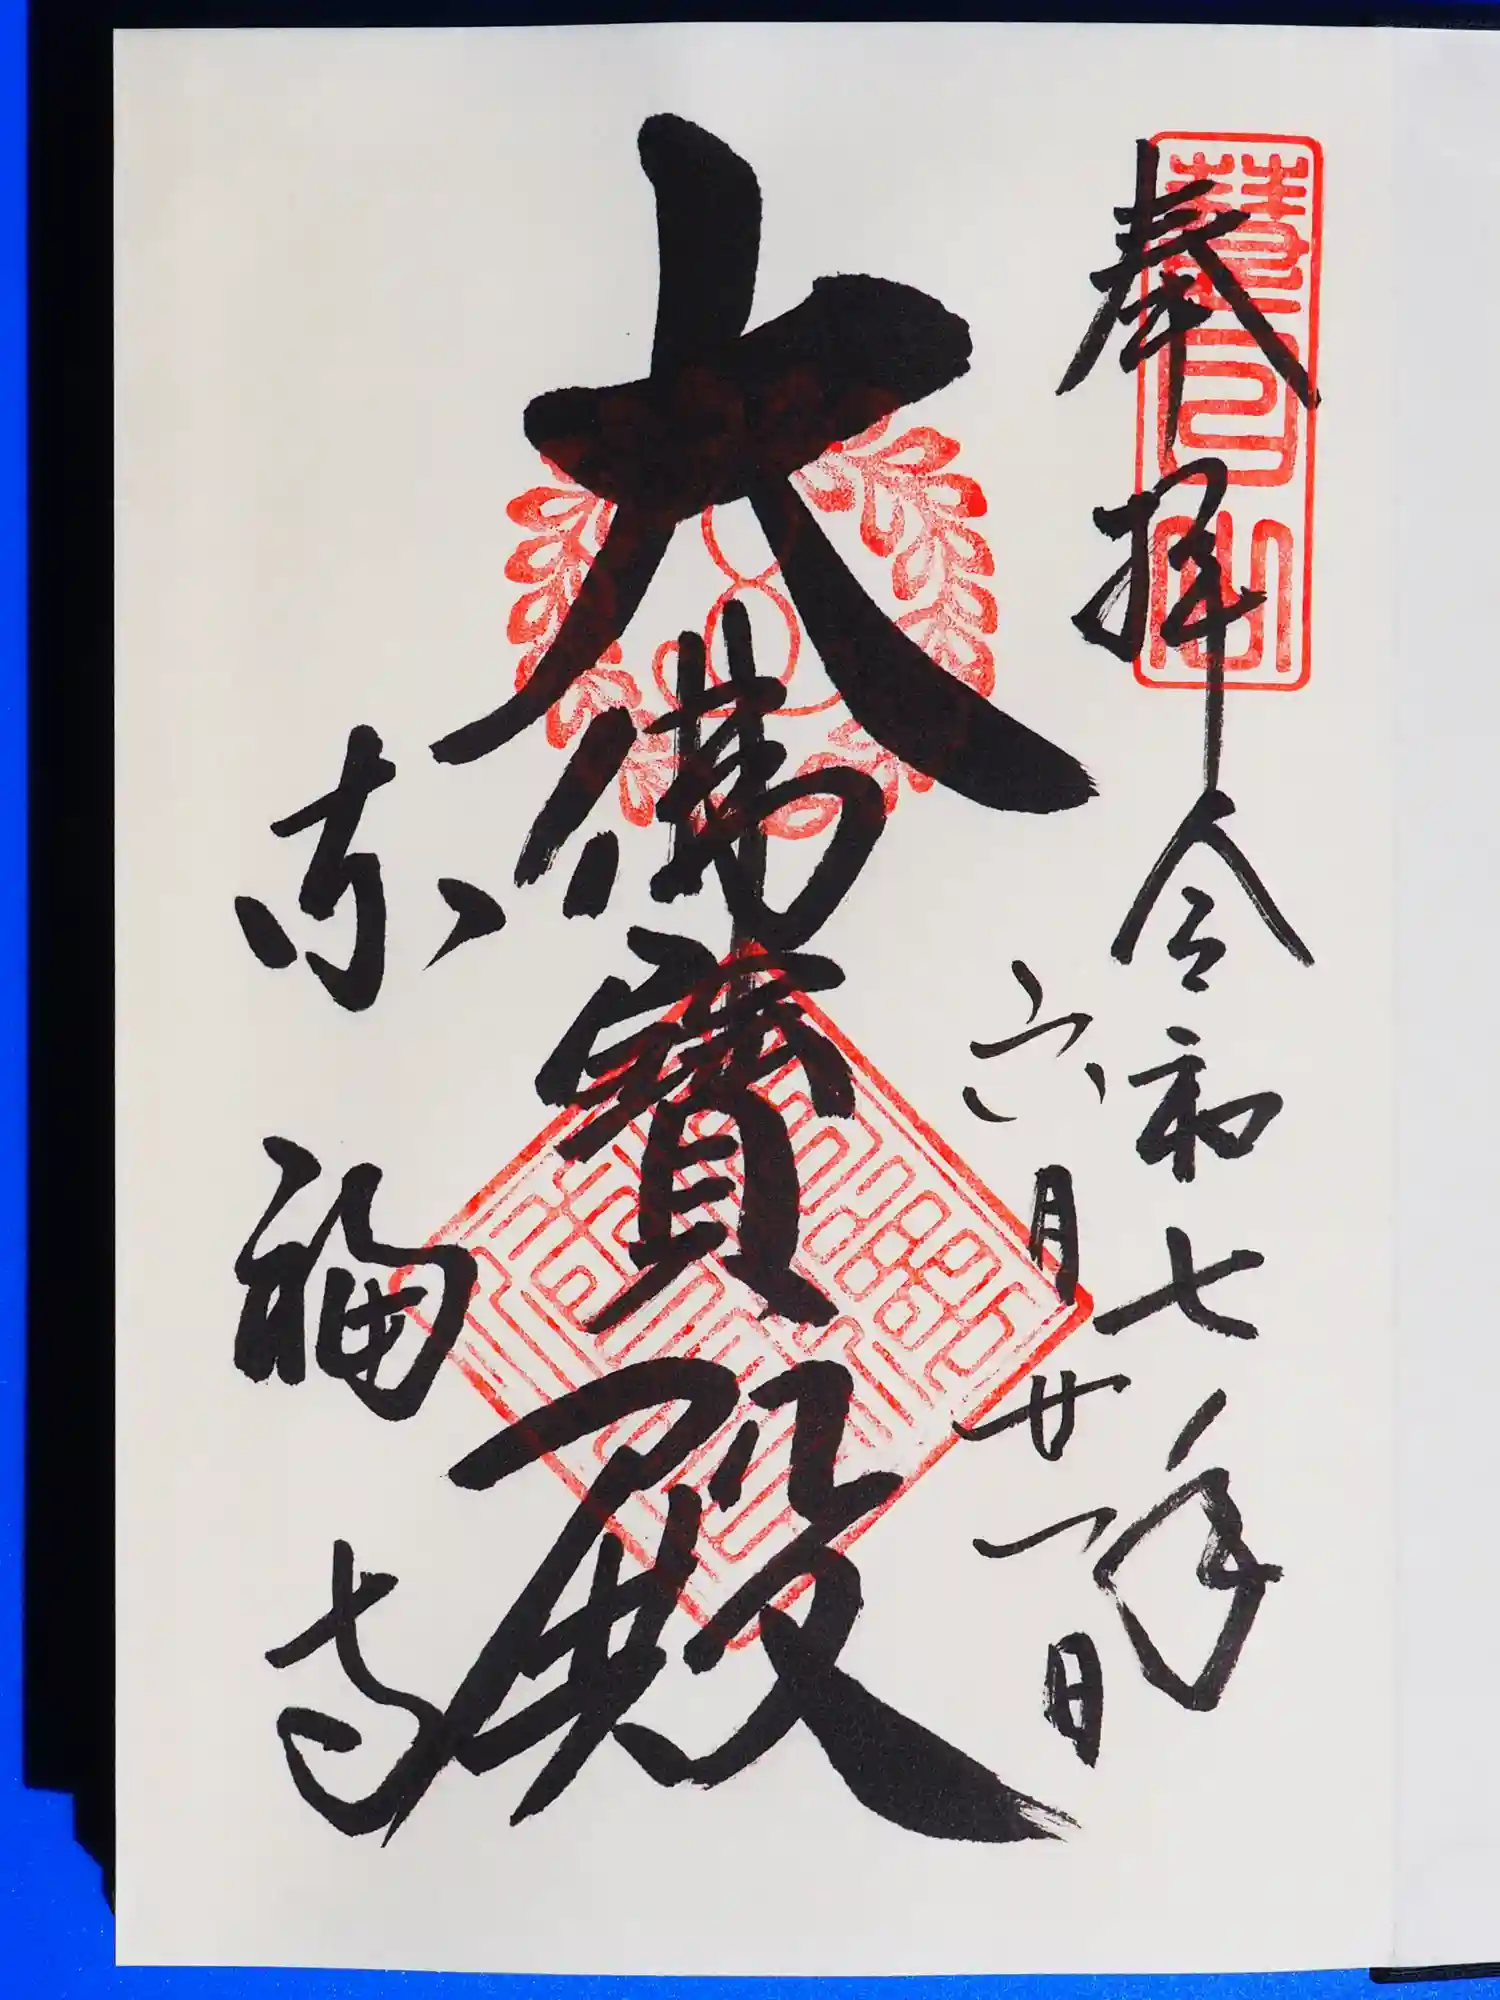 奉拝
令和七年
六月廿一日
大佛寳殿
東福寺
慧日山